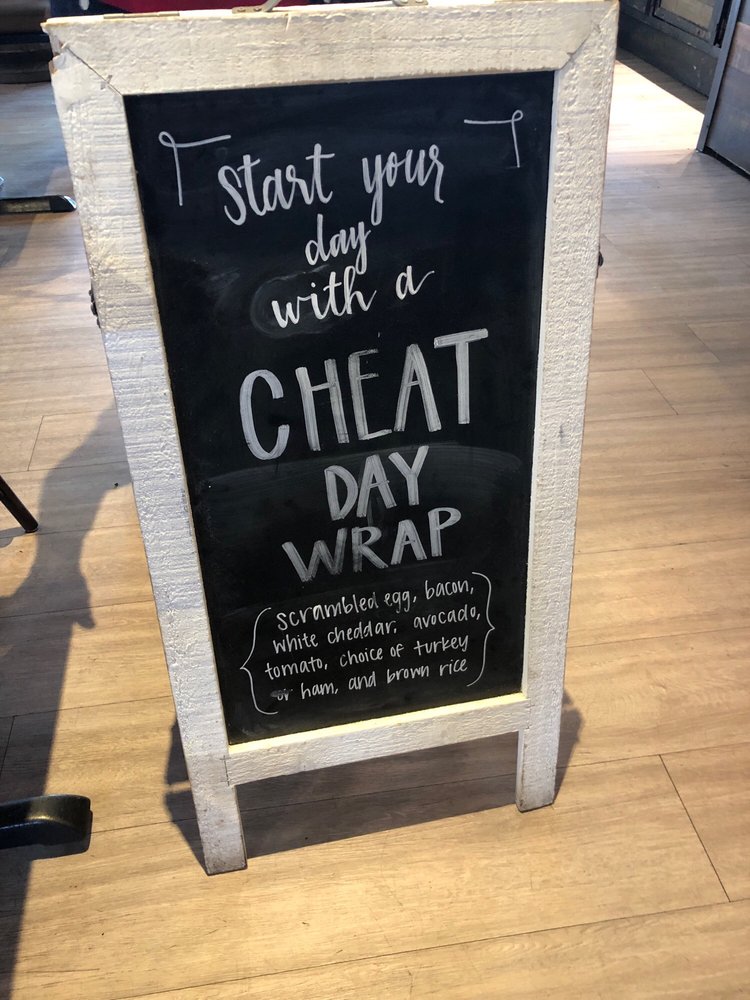 Start your
day
with a
CHEAT
DAY
WRAP
scrambled egg, bacon,
white cheddar, avocado,
tomato, choice of turkey
or ham, and brown rice